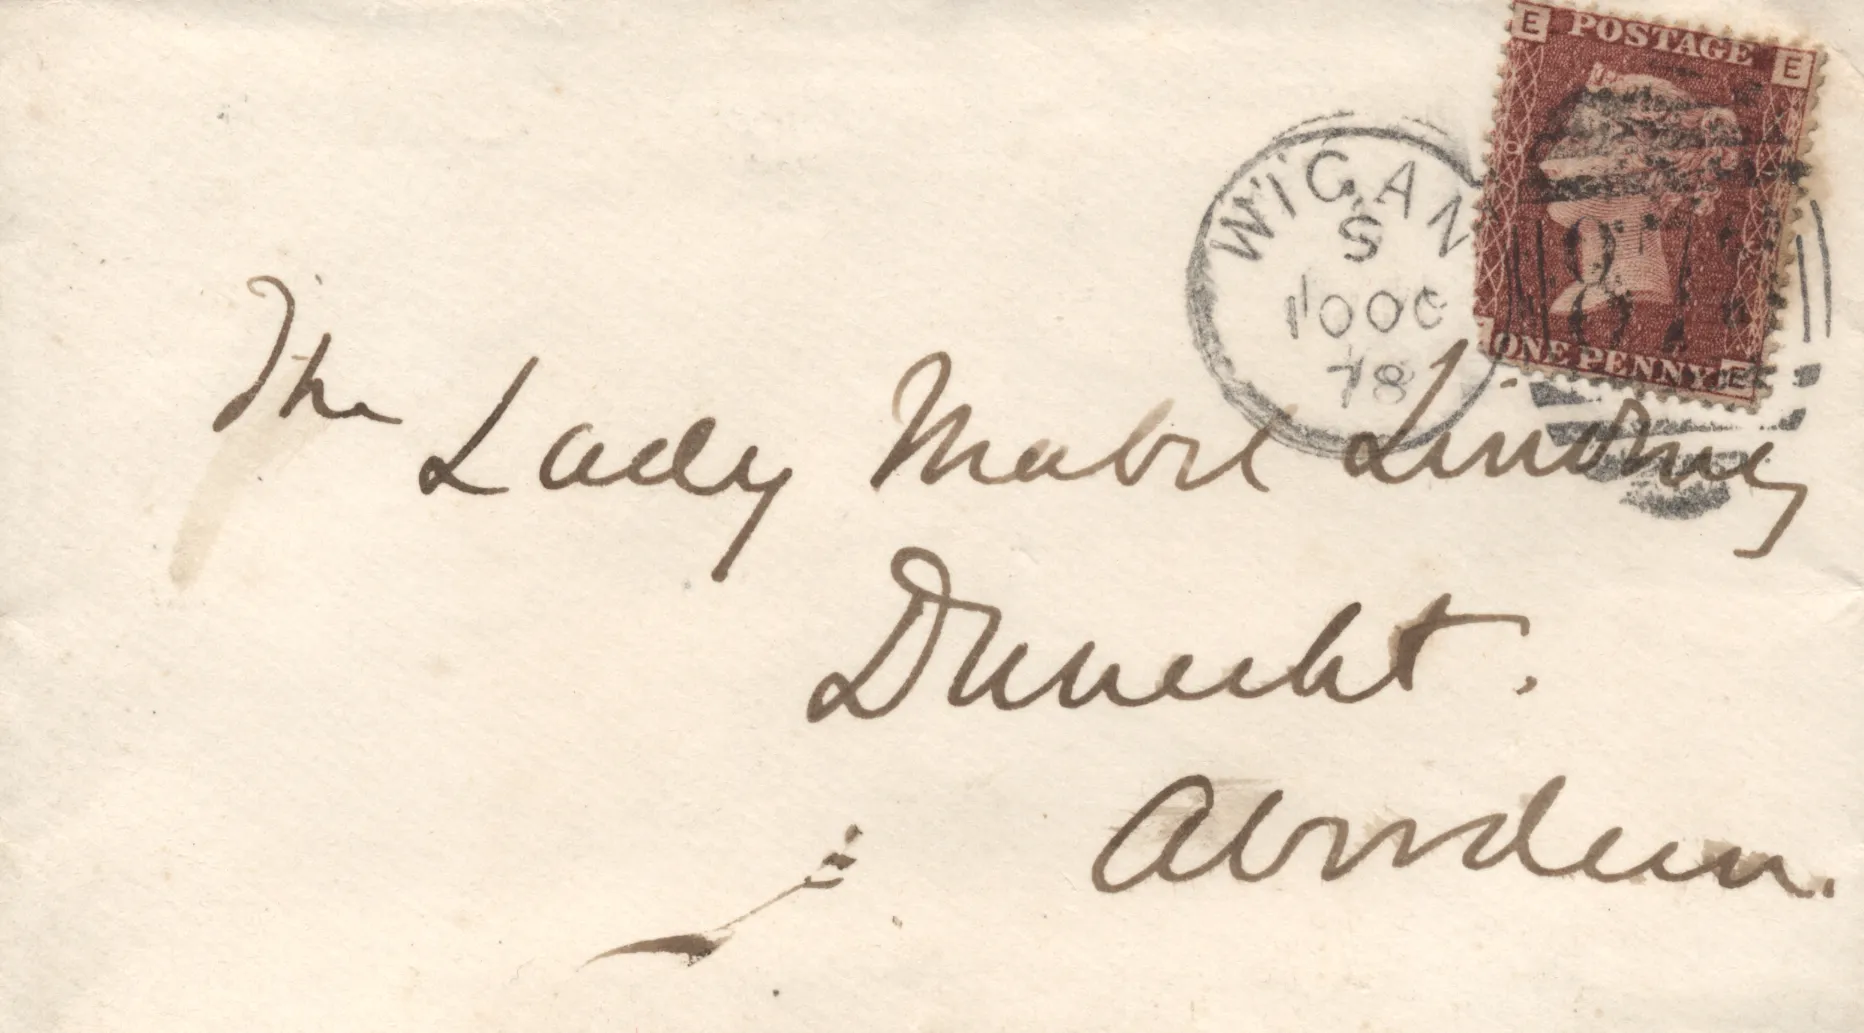 E POSTAGE E
WIGAN
S
10OC
78
ONE PENNY E
The Lady Mabel Lindsay
Dunecht.
Aberdeen.